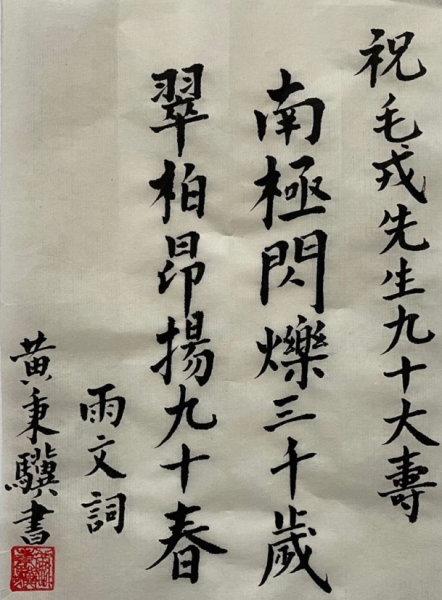 祝毛戎先生九十大壽
南極閃爍三千歲
翠柏昂揚九十春
雨文詞
黃秉驥書